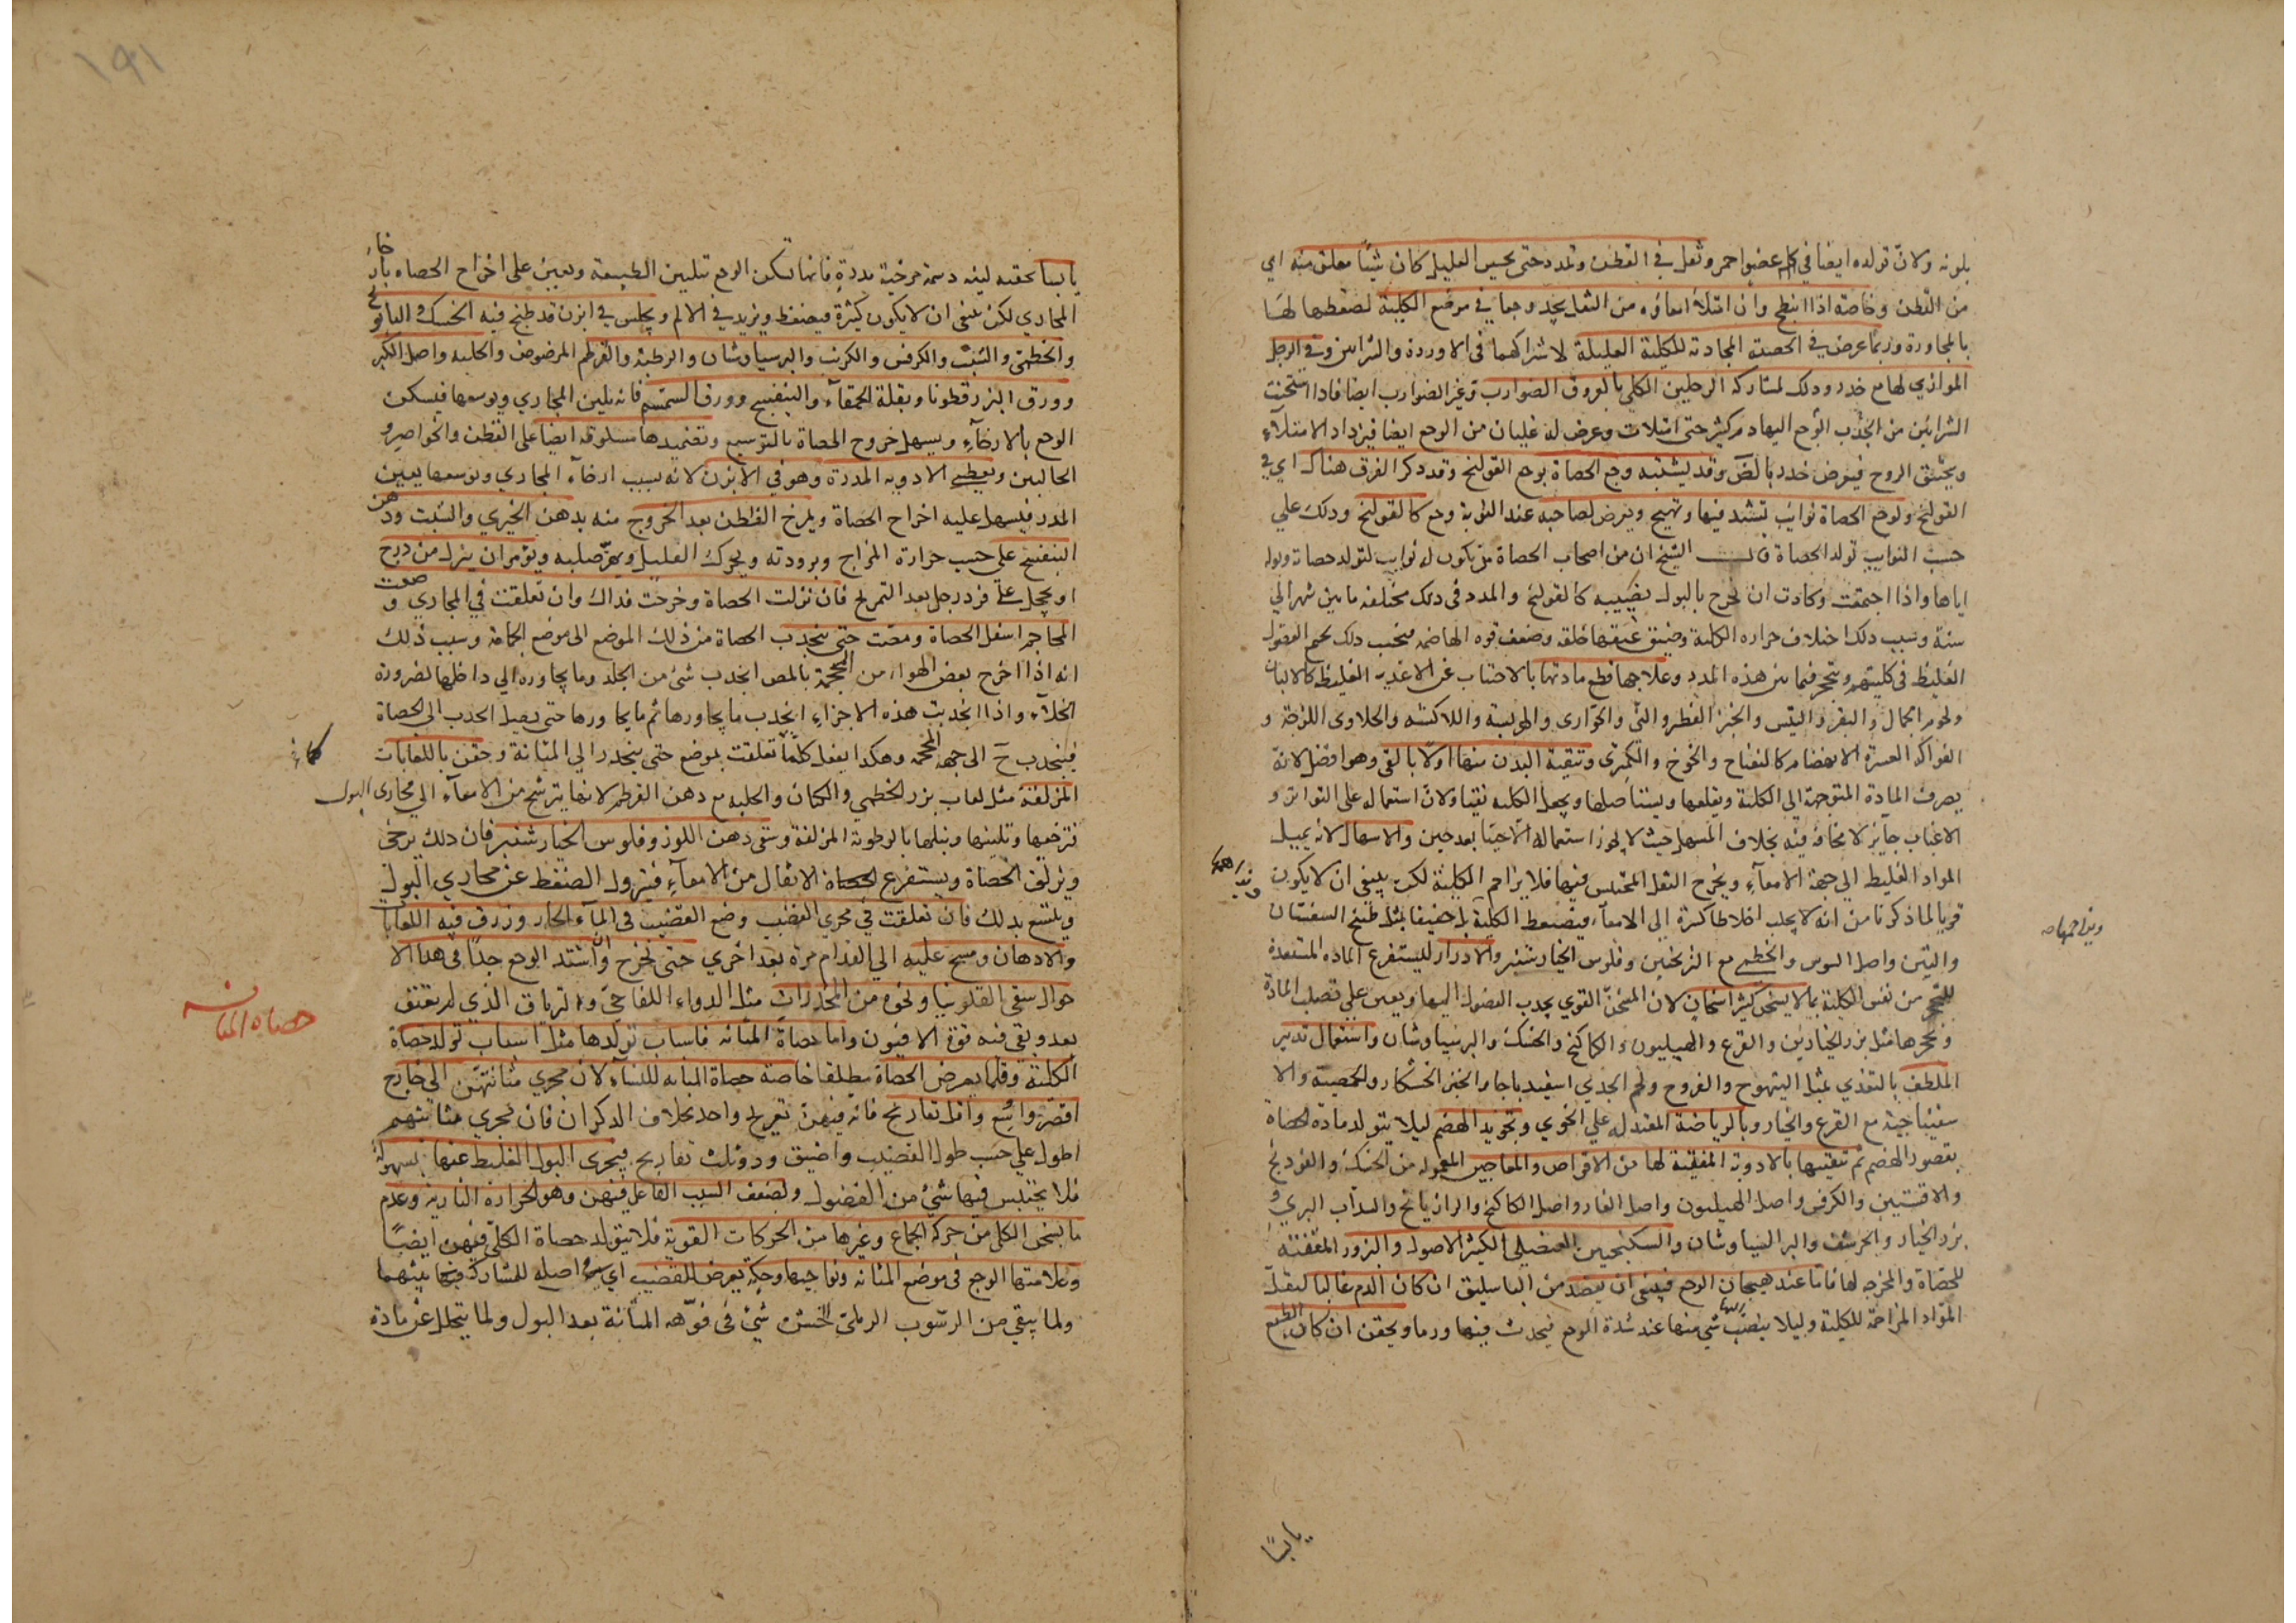 بلونه ولان تولده ايضا في كلم عضوا حمر وثقل في القطن وتمدد حتى يحس العليل كان شيئا معلق منه اي
من القطن وخاصة اذا انبطح وان امتلأ امعاؤه من الثفل يجد وجعا في موضع الكلية لضغطها لها
بالمجاورة وربما عرض في الخصية المحاذية للكلية العليلة لاشتراكهما في الاوردة والشرايين وفي الرجل
الموازي لها مع خدر وذلك لمشاركة الرجلين الكلي بالعروق الضوارب وغير الضوارب ايضا فاذا سخنت
الشرائين من انجذب الوجع اليها دم كثير حتى امتلات وعرض له غليان من الوجع ايضا فيزداد الامتلاء
ويختنق الروح فيعرض خدر وقد يشتبه وجع الحصاة بوجع القولنج وقد ذكر الفرق هناك اي في
القولنج ولوجع الحصاة نوائب تشتد فيها وتهيج ويعرض لصاحبه عند النوبة وجع كالقولنج وذلك علي
حسب النوايب تولد الحصاة قال الشيخ ان من اصحاب الحصاة من يكون له نوايب لتولد حصاته وبوله
اياها واذا اجتمعت وكادت ان تخرج بالبول يصيبه كالقولنج والمدد في ذلك مختلفة ما بين شهر الي
سنة وسبب ذلك اختلاف حرارة الكلية وضيق عنقها خلقة وضعف قوة الهاضمة فبحسب ذلك يجتمع الفضول
الغليظ في كليتهم ويتحجر فيما بين هذه المدد وعلاجها قطع مادتها بالاجتناب عن الاغذية الغليظة كالالبان
ولحوم الجمال والبقر والتيس والخبز الفطير والني والحواري والهريسة واللاكشه والحلاوي اللزجة و
الفواكه العسرة الانهضام كالتفاح والخوخ والكمثرى وتنقية البدن منها اولا بالقي وهو افضل لانه
يصرف المادة المتوجهة الي الكلية ويقلعها ويستاصلها ويجعل الكلية نقيا ولان استعماله على التواتر و
الاغباب جايز لا مخافة فيه بخلاف المسهل حيث لا يجوز استعماله الا حينا بعد حين والاسهال لانه يميل
المواد الغليظة الي جهة الامعاء ويخرج الثفل المحتبس فيها فلا يزاحم الكلية لكن ينبغي ان لا يكون
قويا لما ذكرنا من انه لا يجلب اخلاطا كثيرة الي الامعاء فيضغط الكلية بل خفيفا بمثل طبيخ السفستان
والتين واصل السوس والخطمي مع الترنجبين وفلوس الخيارشنبر والادرار ليستفرغ المادة المستعدة
للتحجر من نفس الكلية بما لا يسخن كثير اسخان لان المسخن القوي يجذب الفضول اليها ويعين علي تصلب المادة
وتحجرها مثل بزر الخيارين والقرع والهيليون والكاكنج والحسك والبرسياوشان واستعمال تدبير
الملطف بالتغذي بمثل التيهوج والفروج ولحم الجدي اسفيدباجا والخبز الخشكار والحمصية والا
سفيناجية مع القرع والخيار وبالرياضة المعتدلة علي الخوي وتجويد الهضم ليلا يتولد مادة الحصاة
بقصور الهضم ثم تنقيتها بالادوية المنقية لها من الاقراص والمعاجين المعمولة من الحسك والفودنج
والافسنتين والكرفس واصل الهيليون واصل الغار واصل الكاكنج والرازيانج والسذاب البري و
بزر الخيار والخرشف والبرسياوشان والسكنجبين العنصلي الكثير الاصول والبزور المفتتة
للحصاة والمخرجه لها فاما عند هيجان الوجع فينبغي ان يفصد من الباسليق ان كان الدم غالبا ليقل
المواد المزاحمة للكلية وليلا ينصب اليها شي منها عند شدة الوجع فيحدث فيها ورما ويحقن ان كان الطبع
يابسا
يابسا بحقنة لينه دسمة مرخية مدرة فانها تسكن الوجع بتليين الطبيعة وتعين على اخراج الحصاه بارخاء
المجاري لكن ينبغي ان لا يكون كثيرة فيضغط ويزيد في الالم ويجلس في ابزن قد طبخ فيه الحسك والبابونج
والخطمي والشبت والكرفس والكرنب والبرسياوشان والرطبة والقرطم المرضوض والحلبه واصل الكبر
وورق البزرقطونا وبقلة الحمقاء والبنفسج وورق السمسم فانه يلين المجاري ويوسعها فيسكن
الوجع بالارخاء ويسهل خروج الحصاة بالتوسيع وتضميدها مسلوقة ايضا على القطن والخواصر و
الحالبين ويعطي الادوية المدرة وهو في الابزن لانه بسبب ارخاء المجاري وتوسعها يعين
المدر فيسهل عليه اخراج الحصاة ويمرخ القطن بعد الخروج منه بدهن الخيري والشبت ودهن
البنفسج علي حسب حرارة المزاج وبرودته ويحرك العليل ويهز صلبه ويؤمر ان ينزل من درج
او يحجل على فرد رجل بعد التمريخ فان نزلت الحصاة وخرجت فذاك وان تعلقت في المجاري وضعت
المحاجم اسفل الحصاة ومصت حتى ينجذب الحصاة من ذلك الموضع الى موضع الحجامة وسبب ذلك
انه اذا اخرج بعض الهواء من المحجمة بالمص انجذب شئ من الجلد وما يجاوره الي داخلها لضرورة
الخلاء واذا انجذبت هذه الاجزاء انجذب ما يجاورها ثم ما يجاورها حتى يصل الجذب الي الحصاة
فينجذب ح الى جهة المحجمة وهكذا يفعل كلما تعلقت بموضع حتى ينحدر الي المثانة وحقن باللعابات
المزلقة مثل لعاب بزر الخطمي والكتان والحلبه مع دهن القرطم لانها يترشح من الامعاء الي مجاري البول
فترخيها وتلينها وتبلها بالرطوبة المزلقة وسقي دهن اللوز وفلوس الخيارشنبر فان ذلك يرخي
ويزلق الحصاة ويستفرغ الاثقال من الامعاء فيزول الضغط عن مجاري البول
ويتسع بذلك فان تعلقت في مجري القضيب وضع القضيب في الماء الحار وزرق فيه اللعابات
والادهان ومسح عليه الي القدام مرة بعد اخري حتى تخرج وان اشتد الوجع جدا في هذا الا
حوال سقي الفلونيا ونحوه من المخدرات مثل الدواء اللفاحي والترياق الذي لم يعتق
بعد وبقي فيه قوة الافيون واما حصاة المثانه فاسباب تولدها مثل اسباب تولد حصاة
الكلية وقلما يعرض الحصاة مطلقا خاصة حصاة المثانه للنساء لان مجري مثانتهن الي خارج
اقصر واوسع واقل تعاريج فانه فيهن تعريج واحد بخلاف الذكران فان مجري مثانتهم
اطول علي حسب طول القضيب واضيق وذو ثلث تعاريج فيجري البول الغليظ عنها بسهولة
فلا يحتبس فيها شئ من الفضول ولضعف السبب الفاعل فيهن وهو الحرارة النارية وعدم
ما يسخن الكلي من حركة الجماع وغيرها من الحركات القوية فلا يتولد حصاة الكلي فيهن ايضا
وعلامتها الوجع في موضع المثانه ونواحيها وحكة يعرض للقضيب اي اصله للمشاركة بينهما
ولما يبقي من الرسوب الرملي الخشن شئ في فوهه المثانة بعد البول ولما يتحلل عن مادة
حصاه المثانه
١٩١